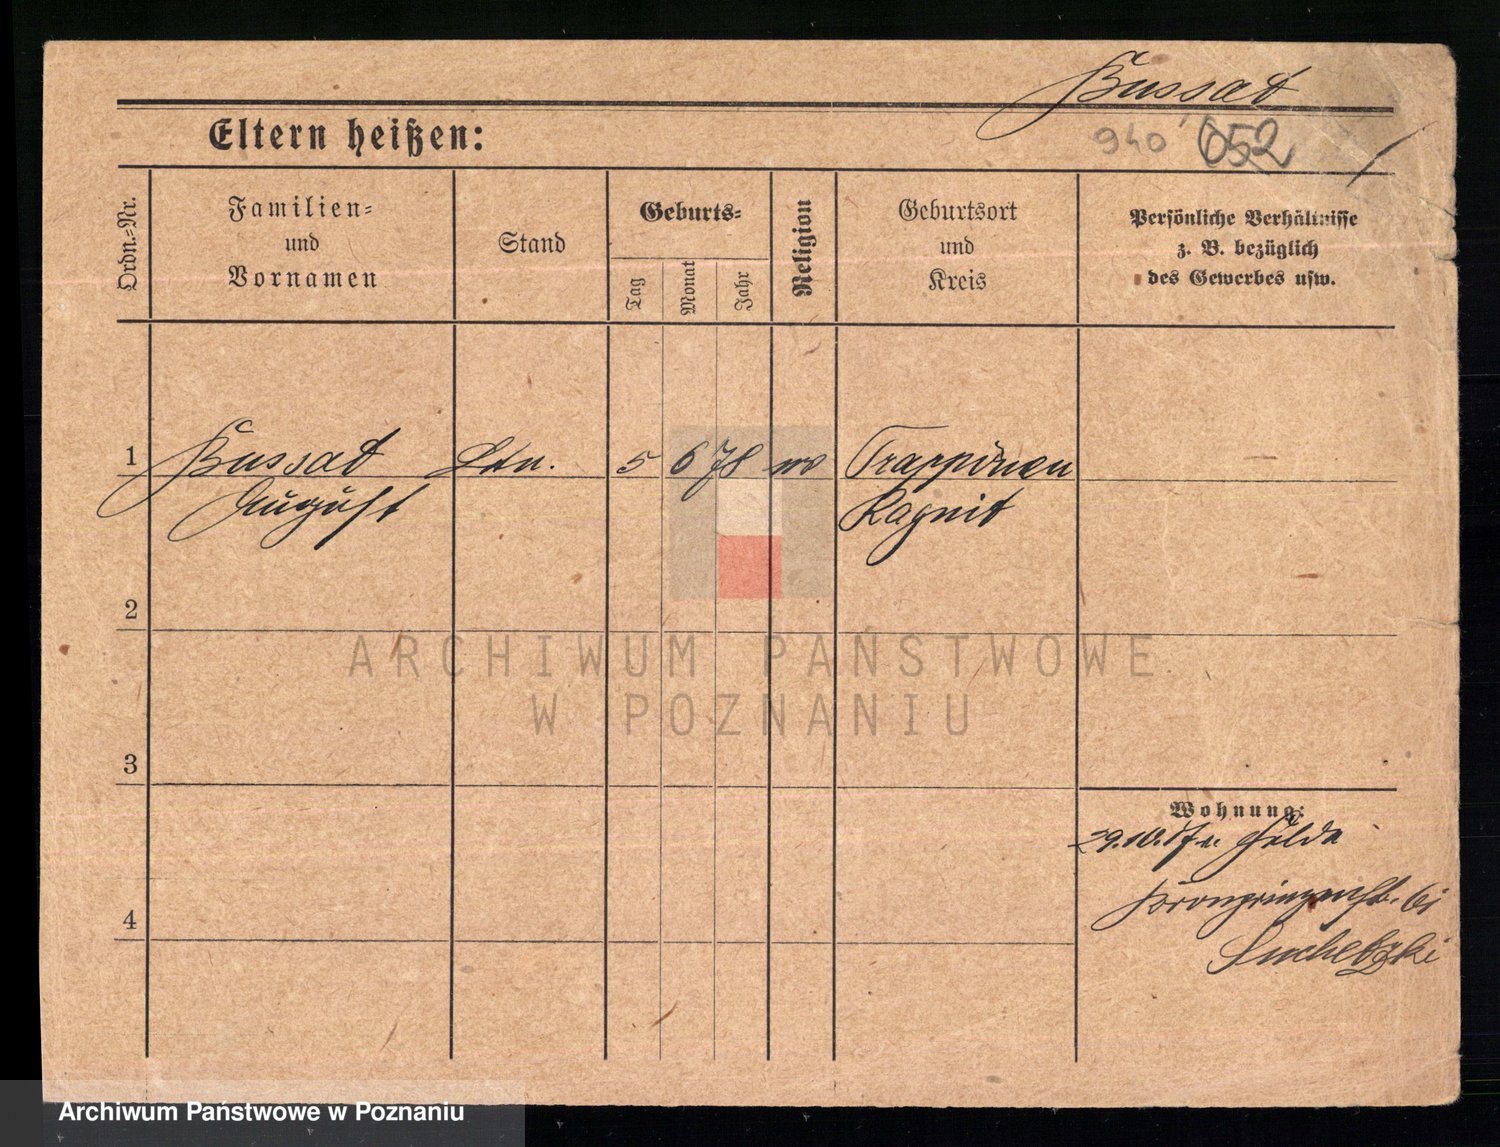 Bussat
Eltern heißen:
940
652
Ordn.=Nr.
Familien=
und
Vornamen
Stand
Geburts=
Tag
Monat
Jahr
Religion
Geburtsort
und
Kreis
Persönliche Verhältnisse
z. B. bezüglich
des Gewerbes usw.
1
Bussat
August
Ltn.
5
6
78
Trappönen
Ragnit
2
3
4
Wohnung:
29.10.17
Kronprinzenstr.
Suchetzki
ARCHIWUM PAŃSTWOWE
W POZNANIU
Archiwum Państwowe w Poznaniu